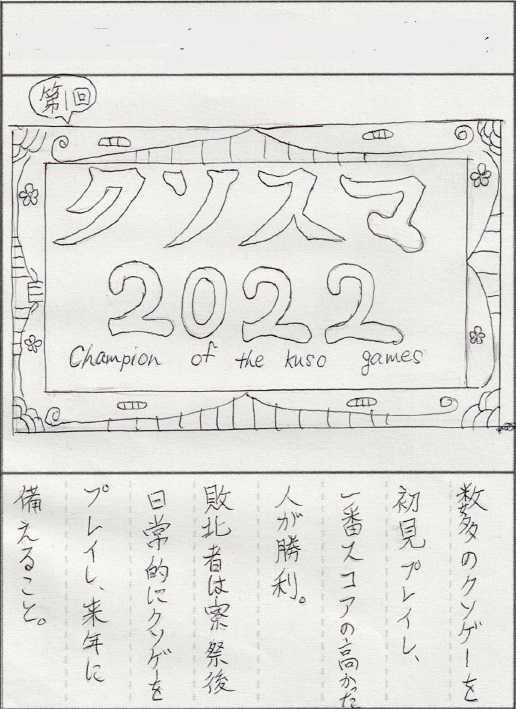 第1回
クソスマ
2022
Champion of the kuso games
数多のクソゲーを
初見プレイし、
一番スコアの高かった
人が勝利。
敗北者は寮祭後
日常的にクソゲーを
プレイし、来年に
備えること。